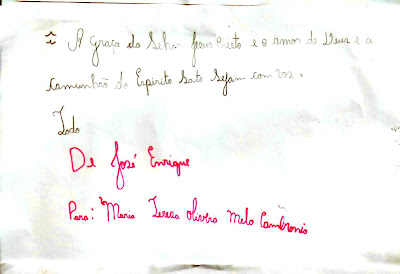 A Graça do Sehor Jesus Cristo e o amor de Deus e a
comunhão do Espirito Sato Sejam com vos.
Todo
De José Enrique
Para: Maria Tereza Olivera Melo Cambronio